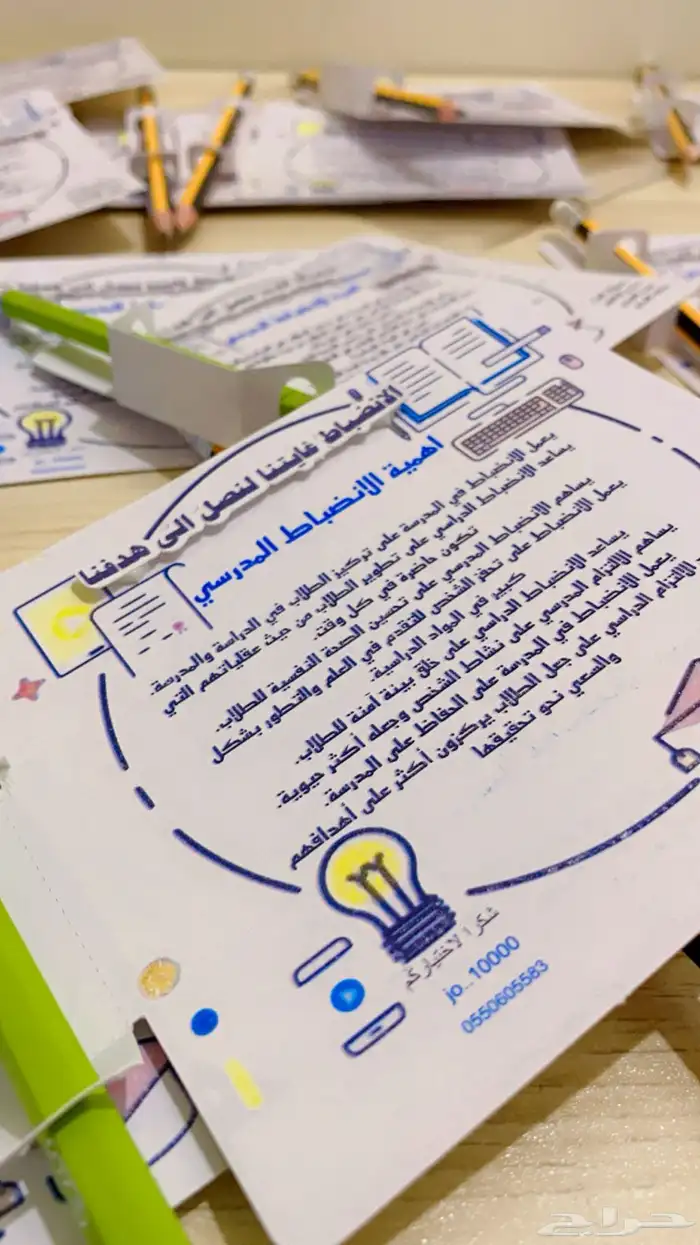 الانضباط غايتنا لنصل الى هدفنا
أهمية الانضباط المدرسي
يعمل الانضباط في المدرسة على تركيز الطلاب في الدراسة والمدرسة.
يساعد الانضباط الدراسي على تطوير الطلاب من حيث عقلياتهم التي
تكون حاضرة في كل وقت.
يساهم الانضباط المدرسي على تحسين الصحة النفسية للطلاب.
يعمل الانضباط على تحفز الشخص للتقدم في العلم والتطور بشكل
كبير في المواد الدراسية.
يساعد الانضباط الدراسي على خلق بيئة آمنة للطلاب.
يساهم الالتزام المدرسي على نشاط الشخص وجعله أكثر حيوية.
يعمل الانضباط في المدرسة على الحفاظ على المدرسة.
الالتزام الدراسي على جعل الطلاب يركزون أكثر على أهدافهم
والسعي نحو تحقيقها
شكرا لاختياركم
jo..10000
0550605583
حراج